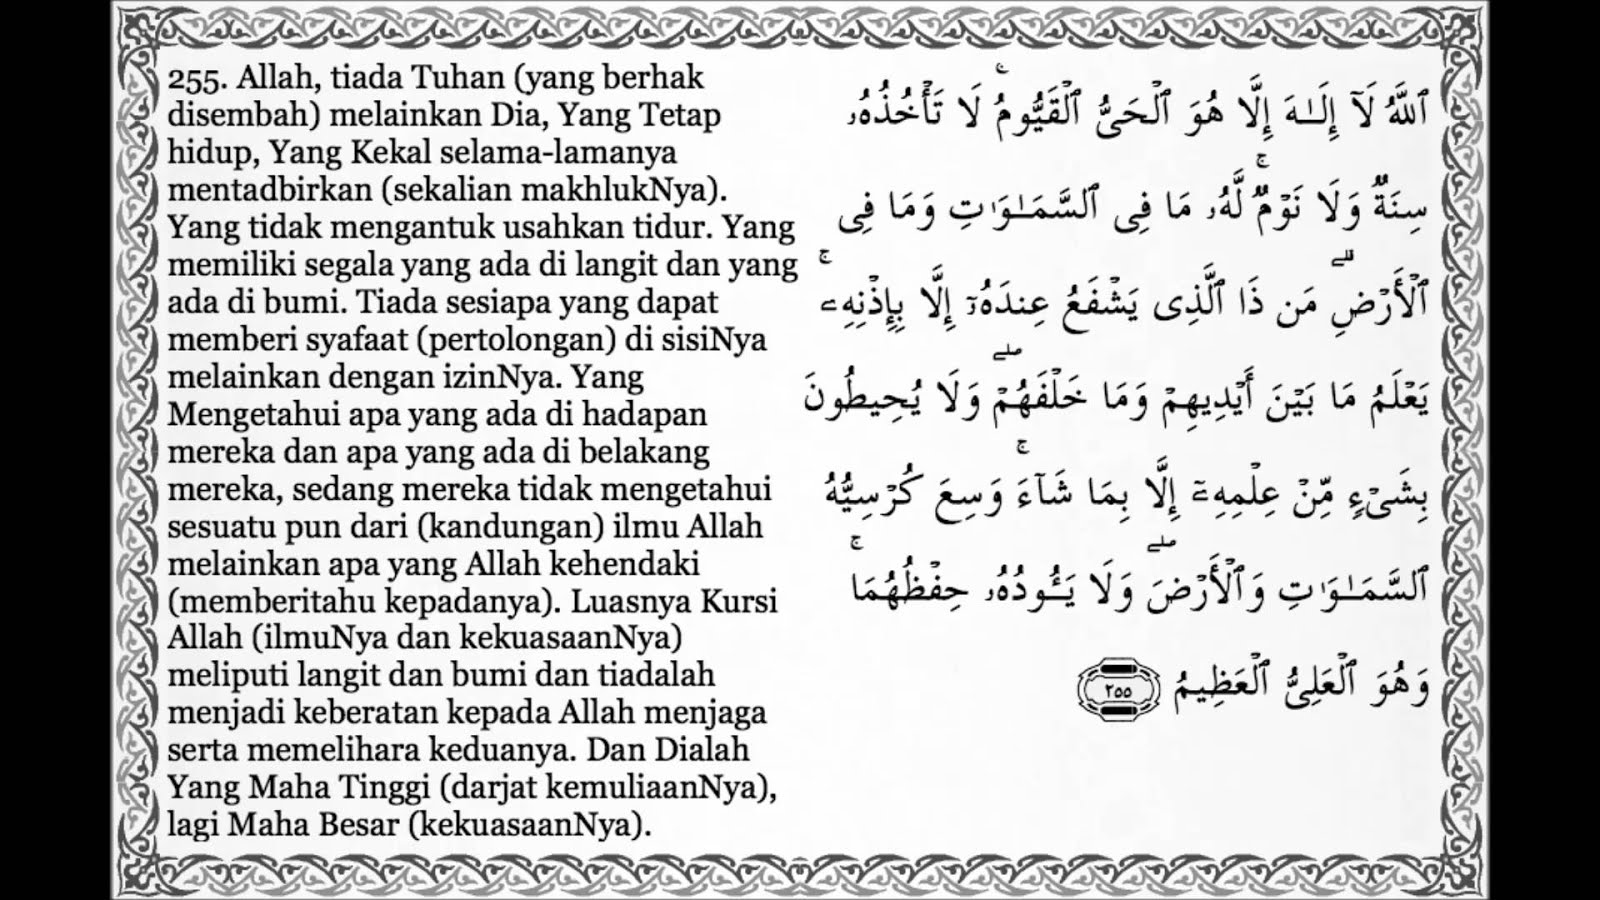 255. Allah, tiada Tuhan (yang berhak
disembah) melainkan Dia, Yang Tetap
hidup, Yang Kekal selama-lamanya
mentadbirkan (sekalian makhlukNya).
Yang tidak mengantuk usahkan tidur. Yang
memiliki segala yang ada di langit dan yang
ada di bumi. Tiada sesiapa yang dapat
memberi syafaat (pertolongan) di sisiNya
melainkan dengan izinNya. Yang
Mengetahui apa yang ada di hadapan
mereka dan apa yang ada di belakang
mereka, sedang mereka tidak mengetahui
sesuatu pun dari (kandungan) ilmu Allah
melainkan apa yang Allah kehendaki
(memberitahu kepadanya). Luasnya Kursi
Allah (ilmuNya dan kekuasaanNya)
meliputi langit dan bumi dan tiadalah
menjadi keberatan kepada Allah menjaga
serta memelihara keduanya. Dan Dialah
Yang Maha Tinggi (darjat kemuliaanNya),
lagi Maha Besar (kekuasaanNya).
ٱللَّهُ لَآ إِلَـٰهَ إِلَّا هُوَ ٱلْحَىُّ ٱلْقَيُّومُ ۚ لَا تَأْخُذُهُۥ
سِنَةٌ وَلَا نَوْمٌ ۚ لَّهُۥ مَا فِى ٱلسَّمَـٰوَٰتِ وَمَا فِى
ٱلْأَرْضِ ۗ مَن ذَا ٱلَّذِى يَشْفَعُ عِندَهُۥٓ إِلَّا بِإِذْنِهِۦ ۚ
يَعْلَمُ مَا بَيْنَ أَيْدِيهِمْ وَمَا خَلْفَهُمْ ۖ وَلَا يُحِيطُونَ
بِشَىْءٍ مِّنْ عِلْمِهِۦٓ إِلَّا بِمَا شَآءَ ۚ وَسِعَ كُرْسِيُّهُ
ٱلسَّمَـٰوَٰتِ وَٱلْأَرْضَ ۖ وَلَا يَـُٔودُهُۥ حِفْظُهُمَا ۚ
وَهُوَ ٱلْعَلِىُّ ٱلْعَظِيمُ ٢٥٥